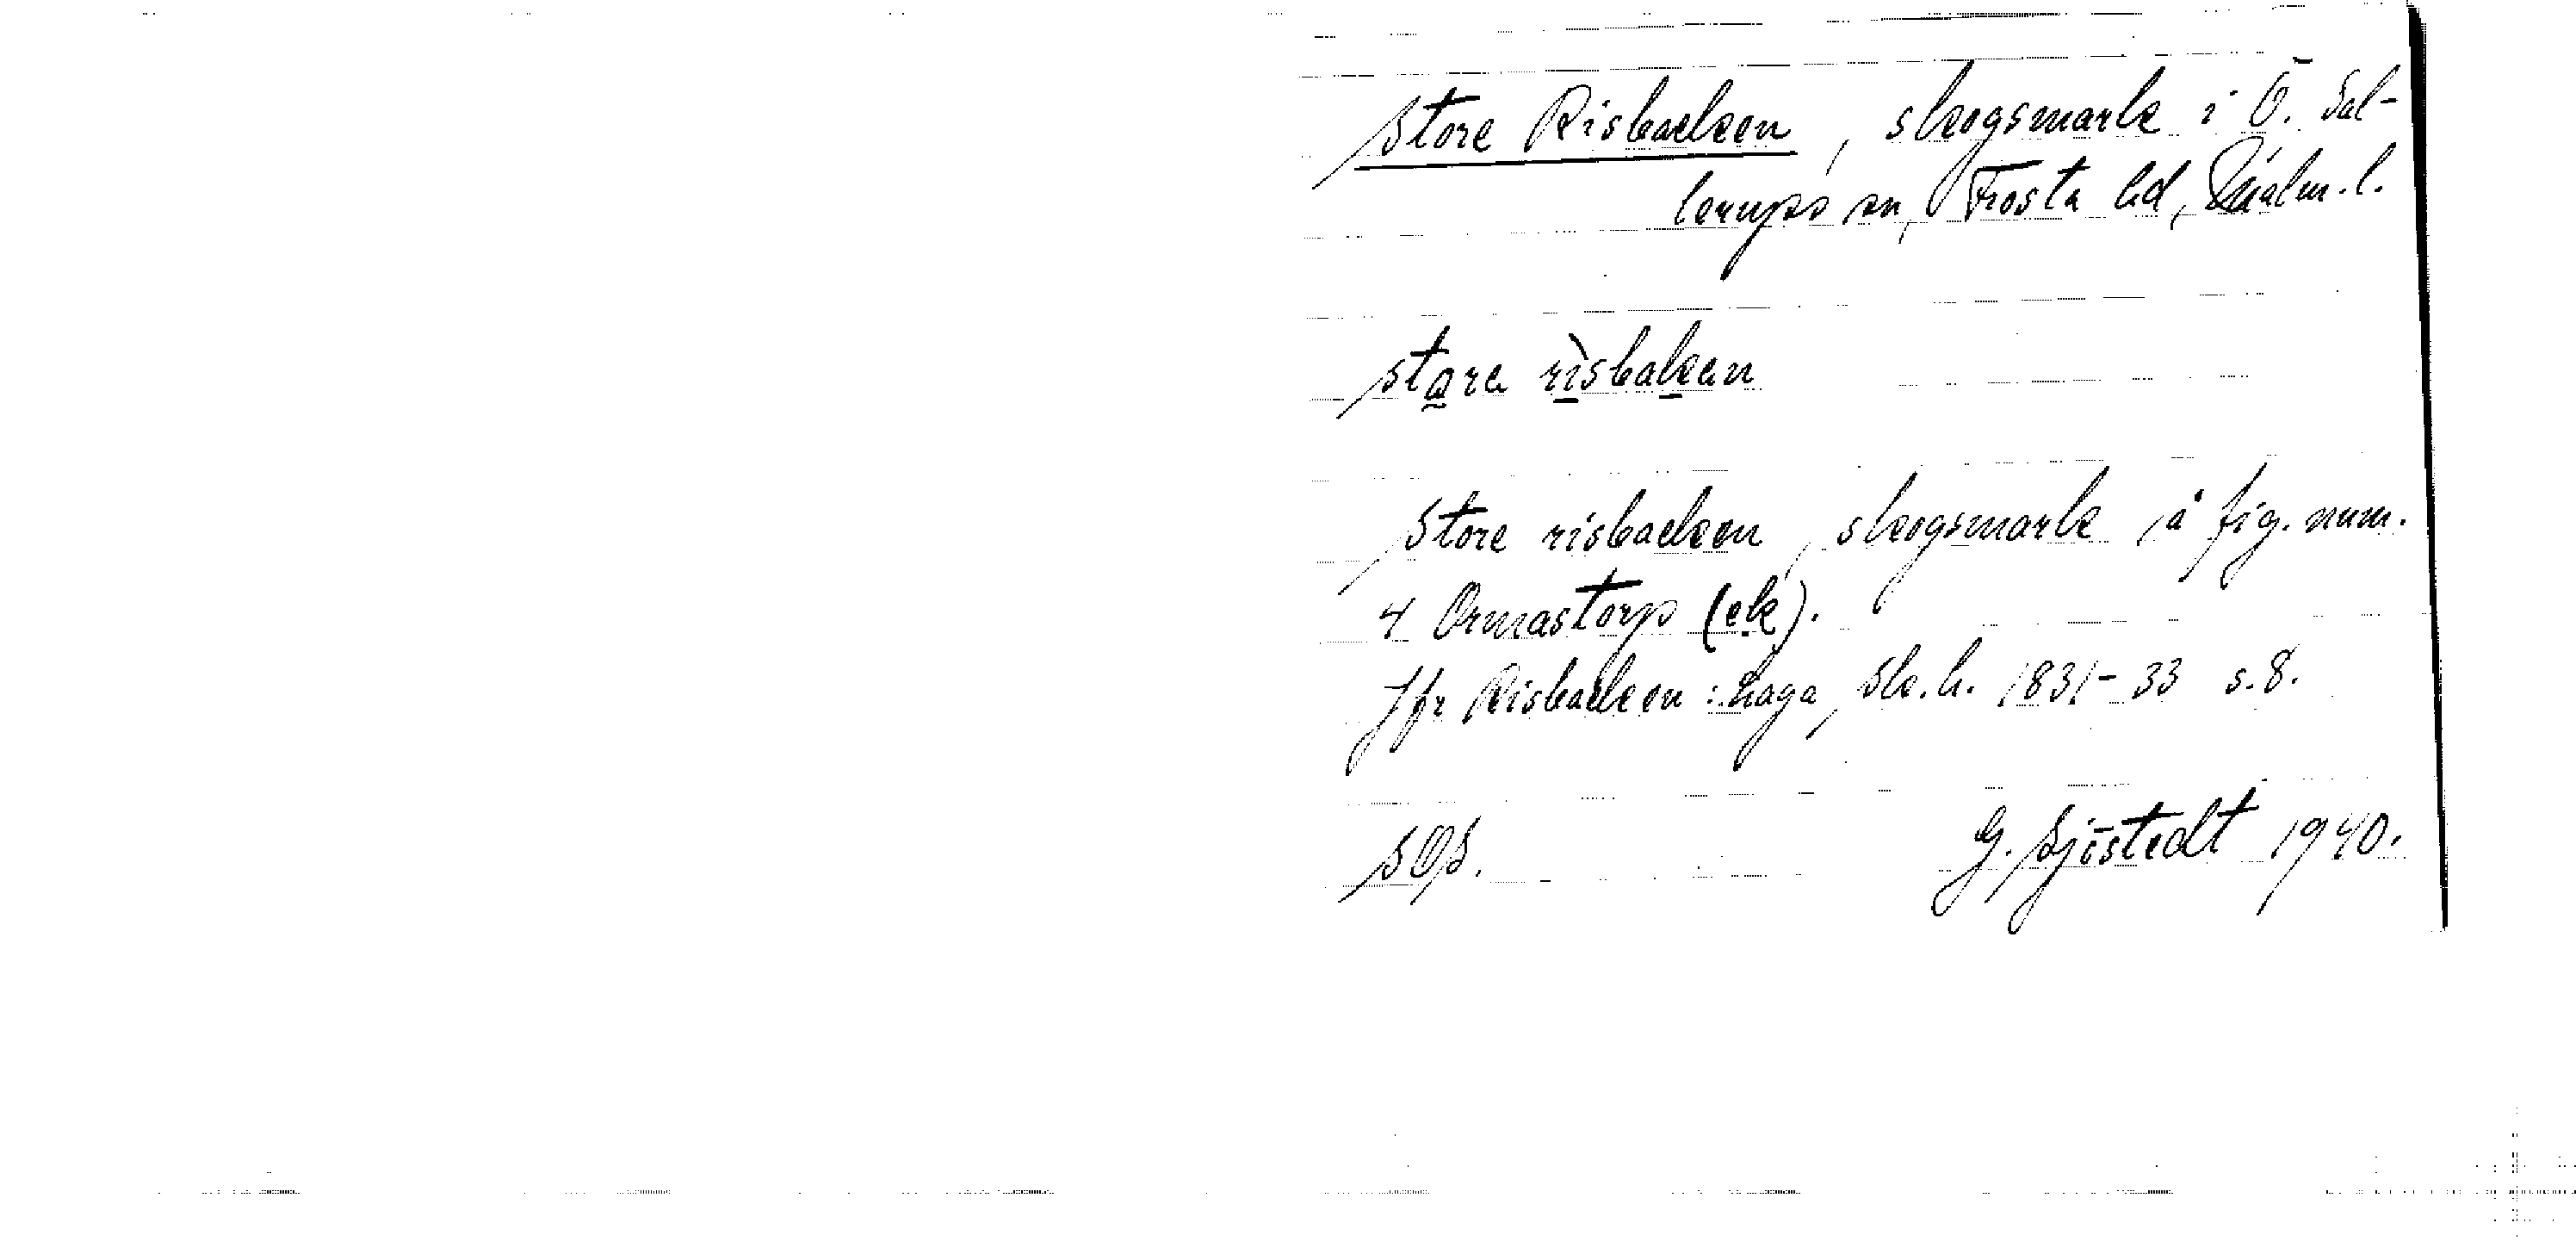 Store Risbacken, skogsmark i Ö. Sal-
lerups sn, Frosta hd, Malm. l.
stọra rìsbakan
Store risbacken, skogsmark, å fig. num.
4 Ormastorp (ek).
Jfr Risbacken: haga, Sk. h. 1831-33 s. 8.
SOS. G. Sjöstedt 1940.